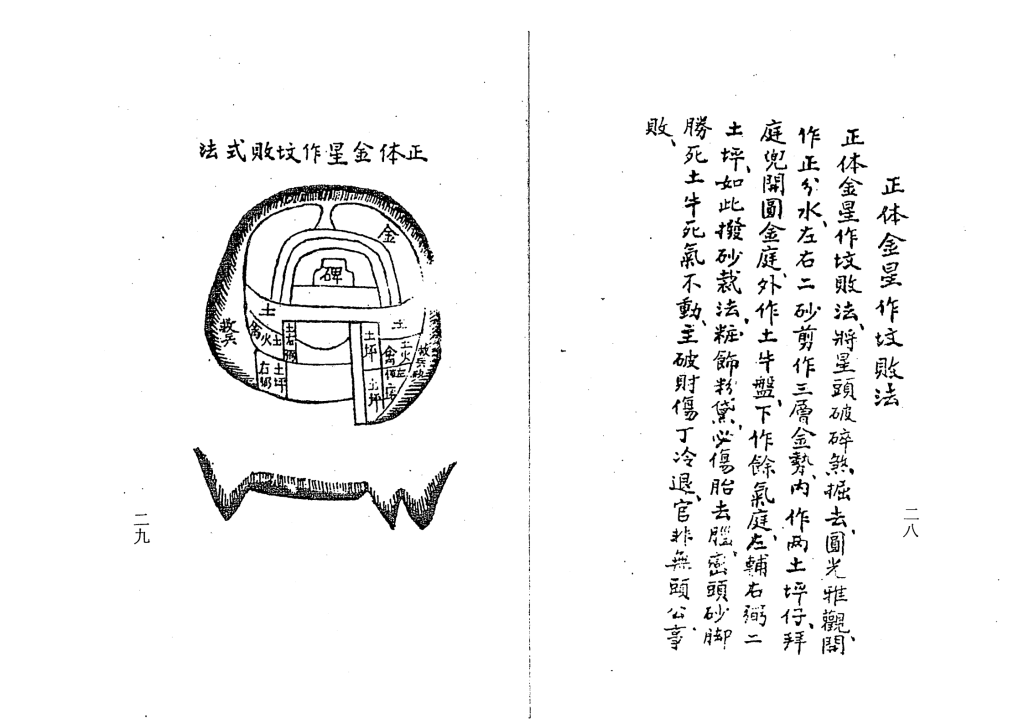 正体金星作坟敗法
正体金星作坟敗法、將星頭破碎煞掘去、圓光雅觀、開
作正分水、左右二砂剪作三層金勢、内作两土坪仔、拜
庭兜開圓金庭、外作土牛盤、下作餘氣庭、左輔右弼二
土坪、如此撥砂裁法、粧飾粉黛、必傷胎去腦、巒頭砂脚
勝死土牛死氣不動、主破財傷丁冷退、官非無頭公事
敗、
二八
正体金星作坟敗式法
金
碑
土
土
禽火土
土右弼
土坪
右弼
土坪
土火
禽
土坪
二九